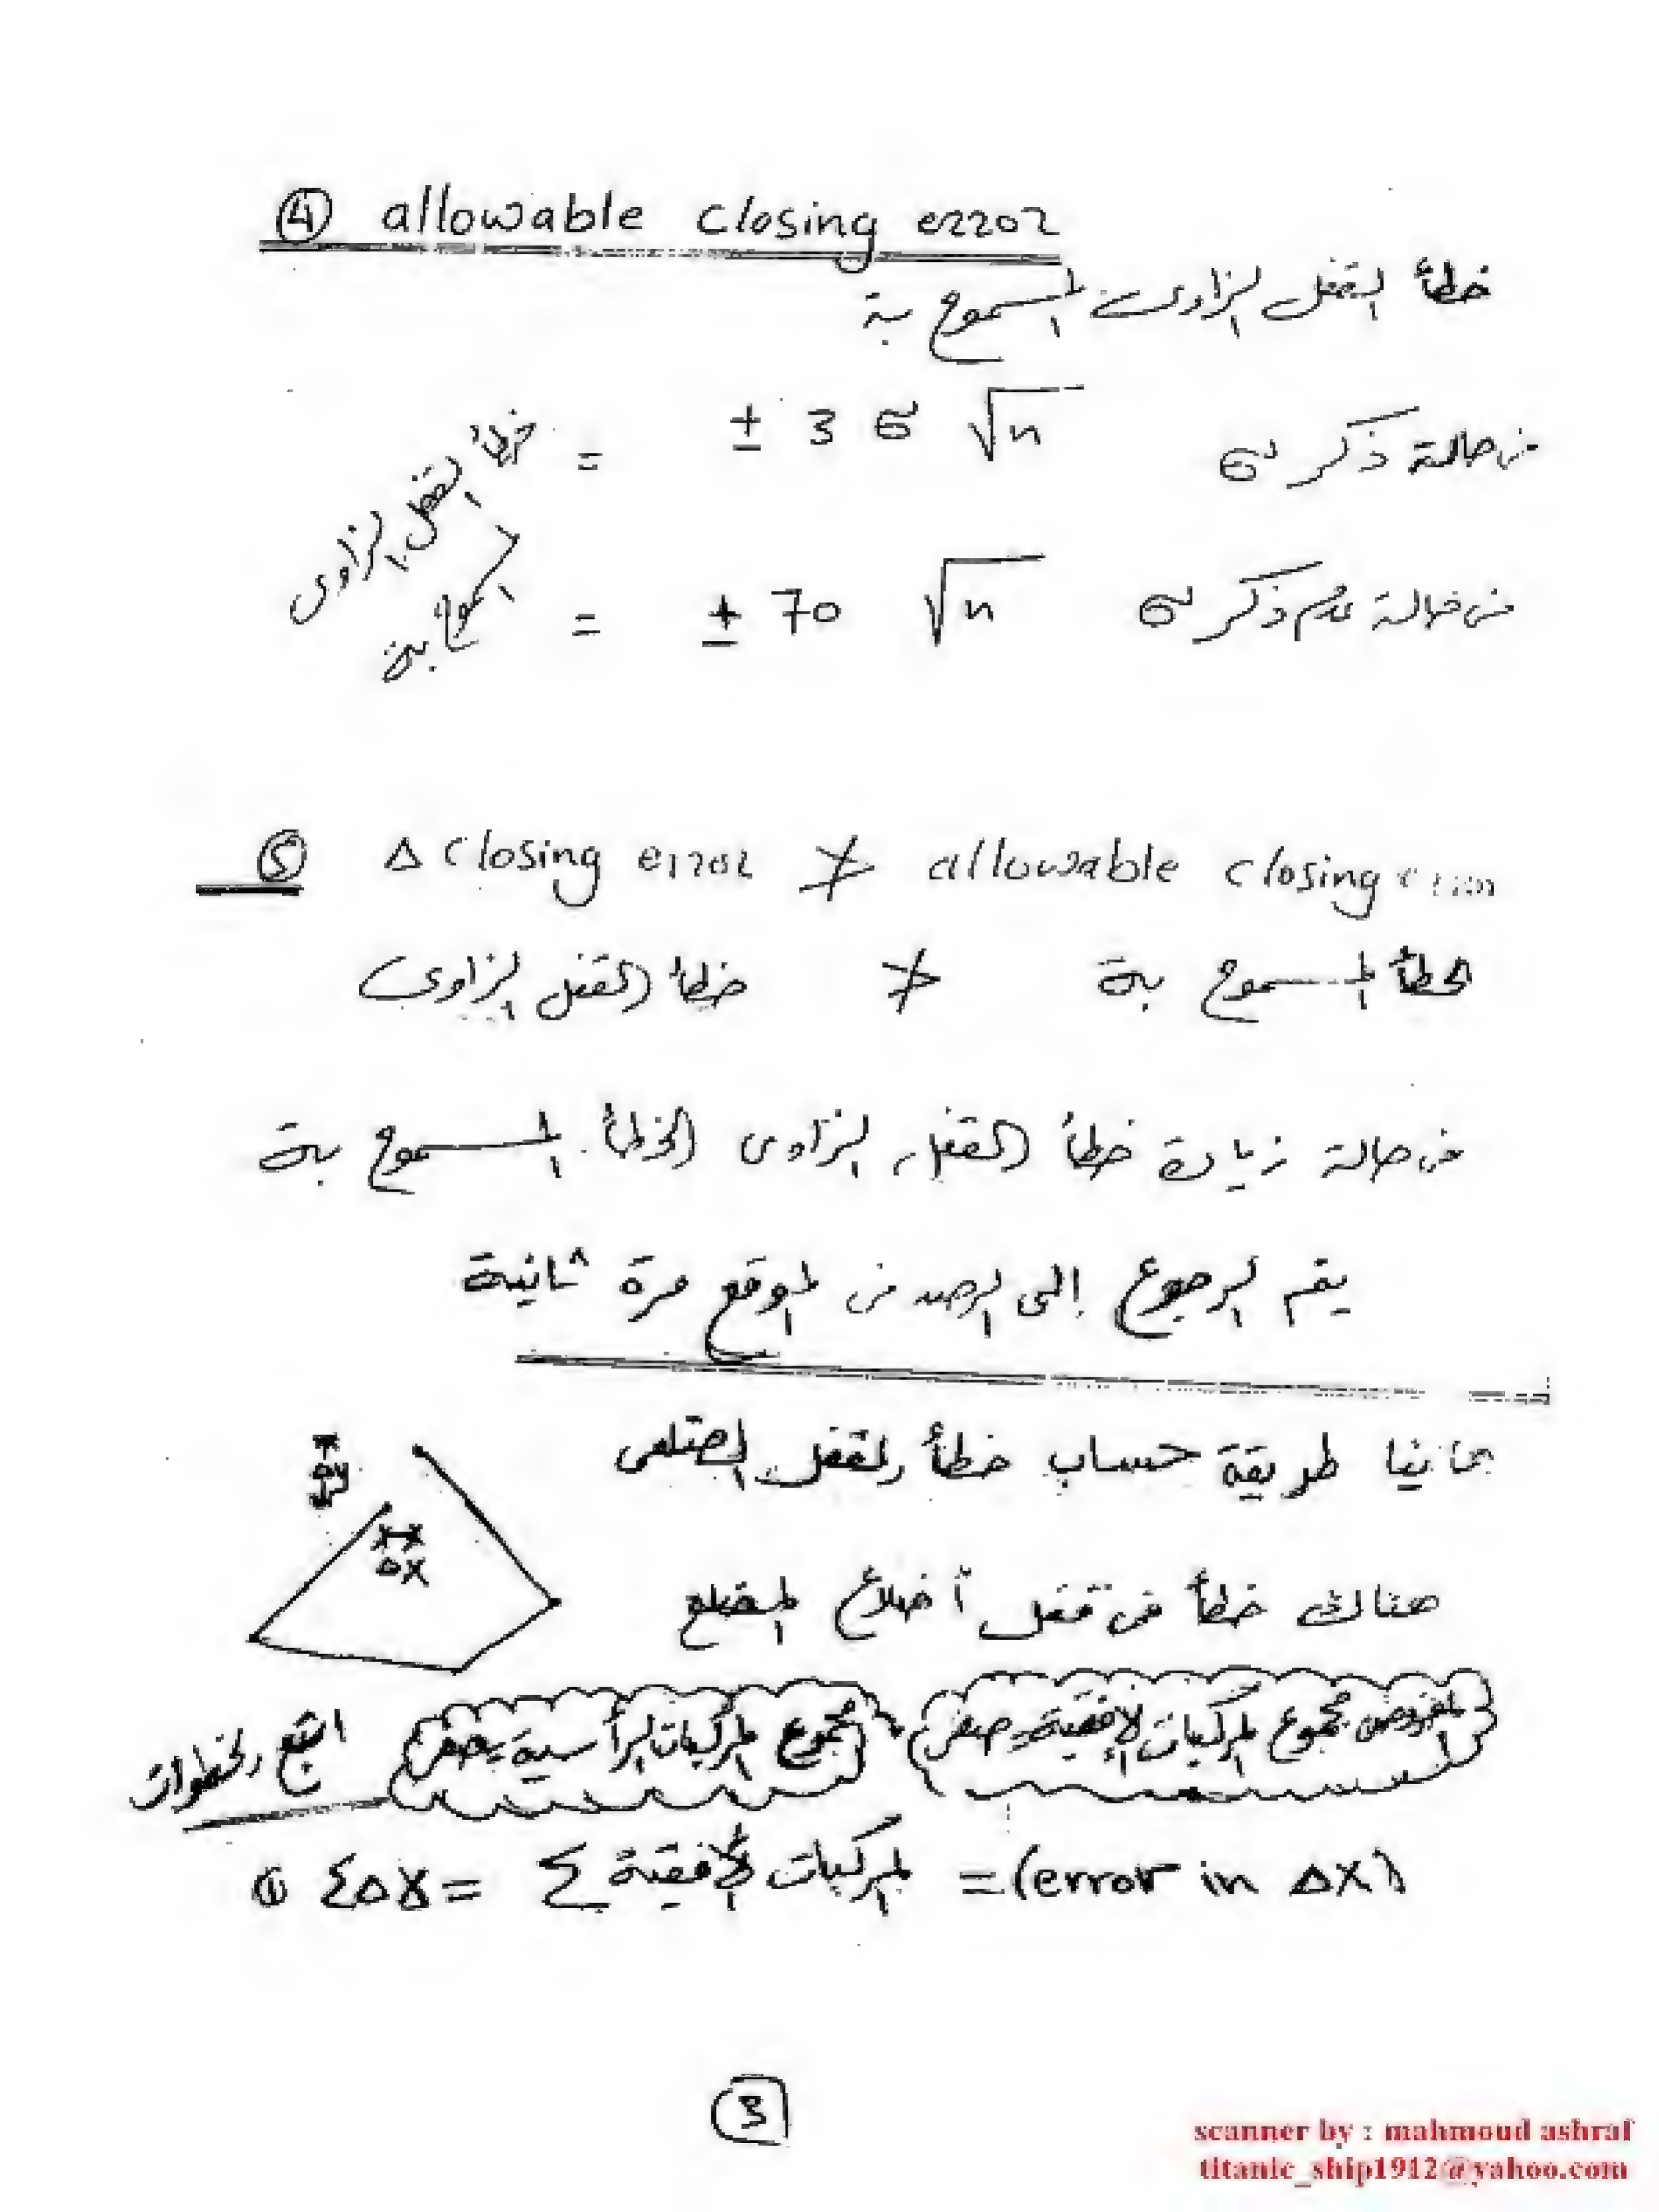 ④ allowable closing error
خطأ القفل الزاوى المسموح بة
فى حالة ذكر σ ± 3 σ √n =
خطأ القفل الزاوى المسموح بة
فى حالة عدم ذكر σ ± 70 √n =
⑤ Δ closing error ≯ allowable closing error
خطأ القفل الزاوى ≯ الخطأ المسموح بة
فى حالة زيادة خطأ القفل الزاوى الخطأ المسموح بة
يتم الرجوع إلى الرصد فى الموقع مرة ثانية
ثانيا طريقة حساب خطأ القفل الضلعى
Δy
ΔX
هناك خطأ فى قفل أضلاع المضلع
المفروض مجموع المركبات الافقية = صفر
مجموع المركبات الرأسية = صفر
اتبع الخطوات
① ΣΔX = Σ المركبات الأفقية = (error in ΔX)
3
scanner by : mahmoud ashraf
titanic_ship1912@yahoo.com